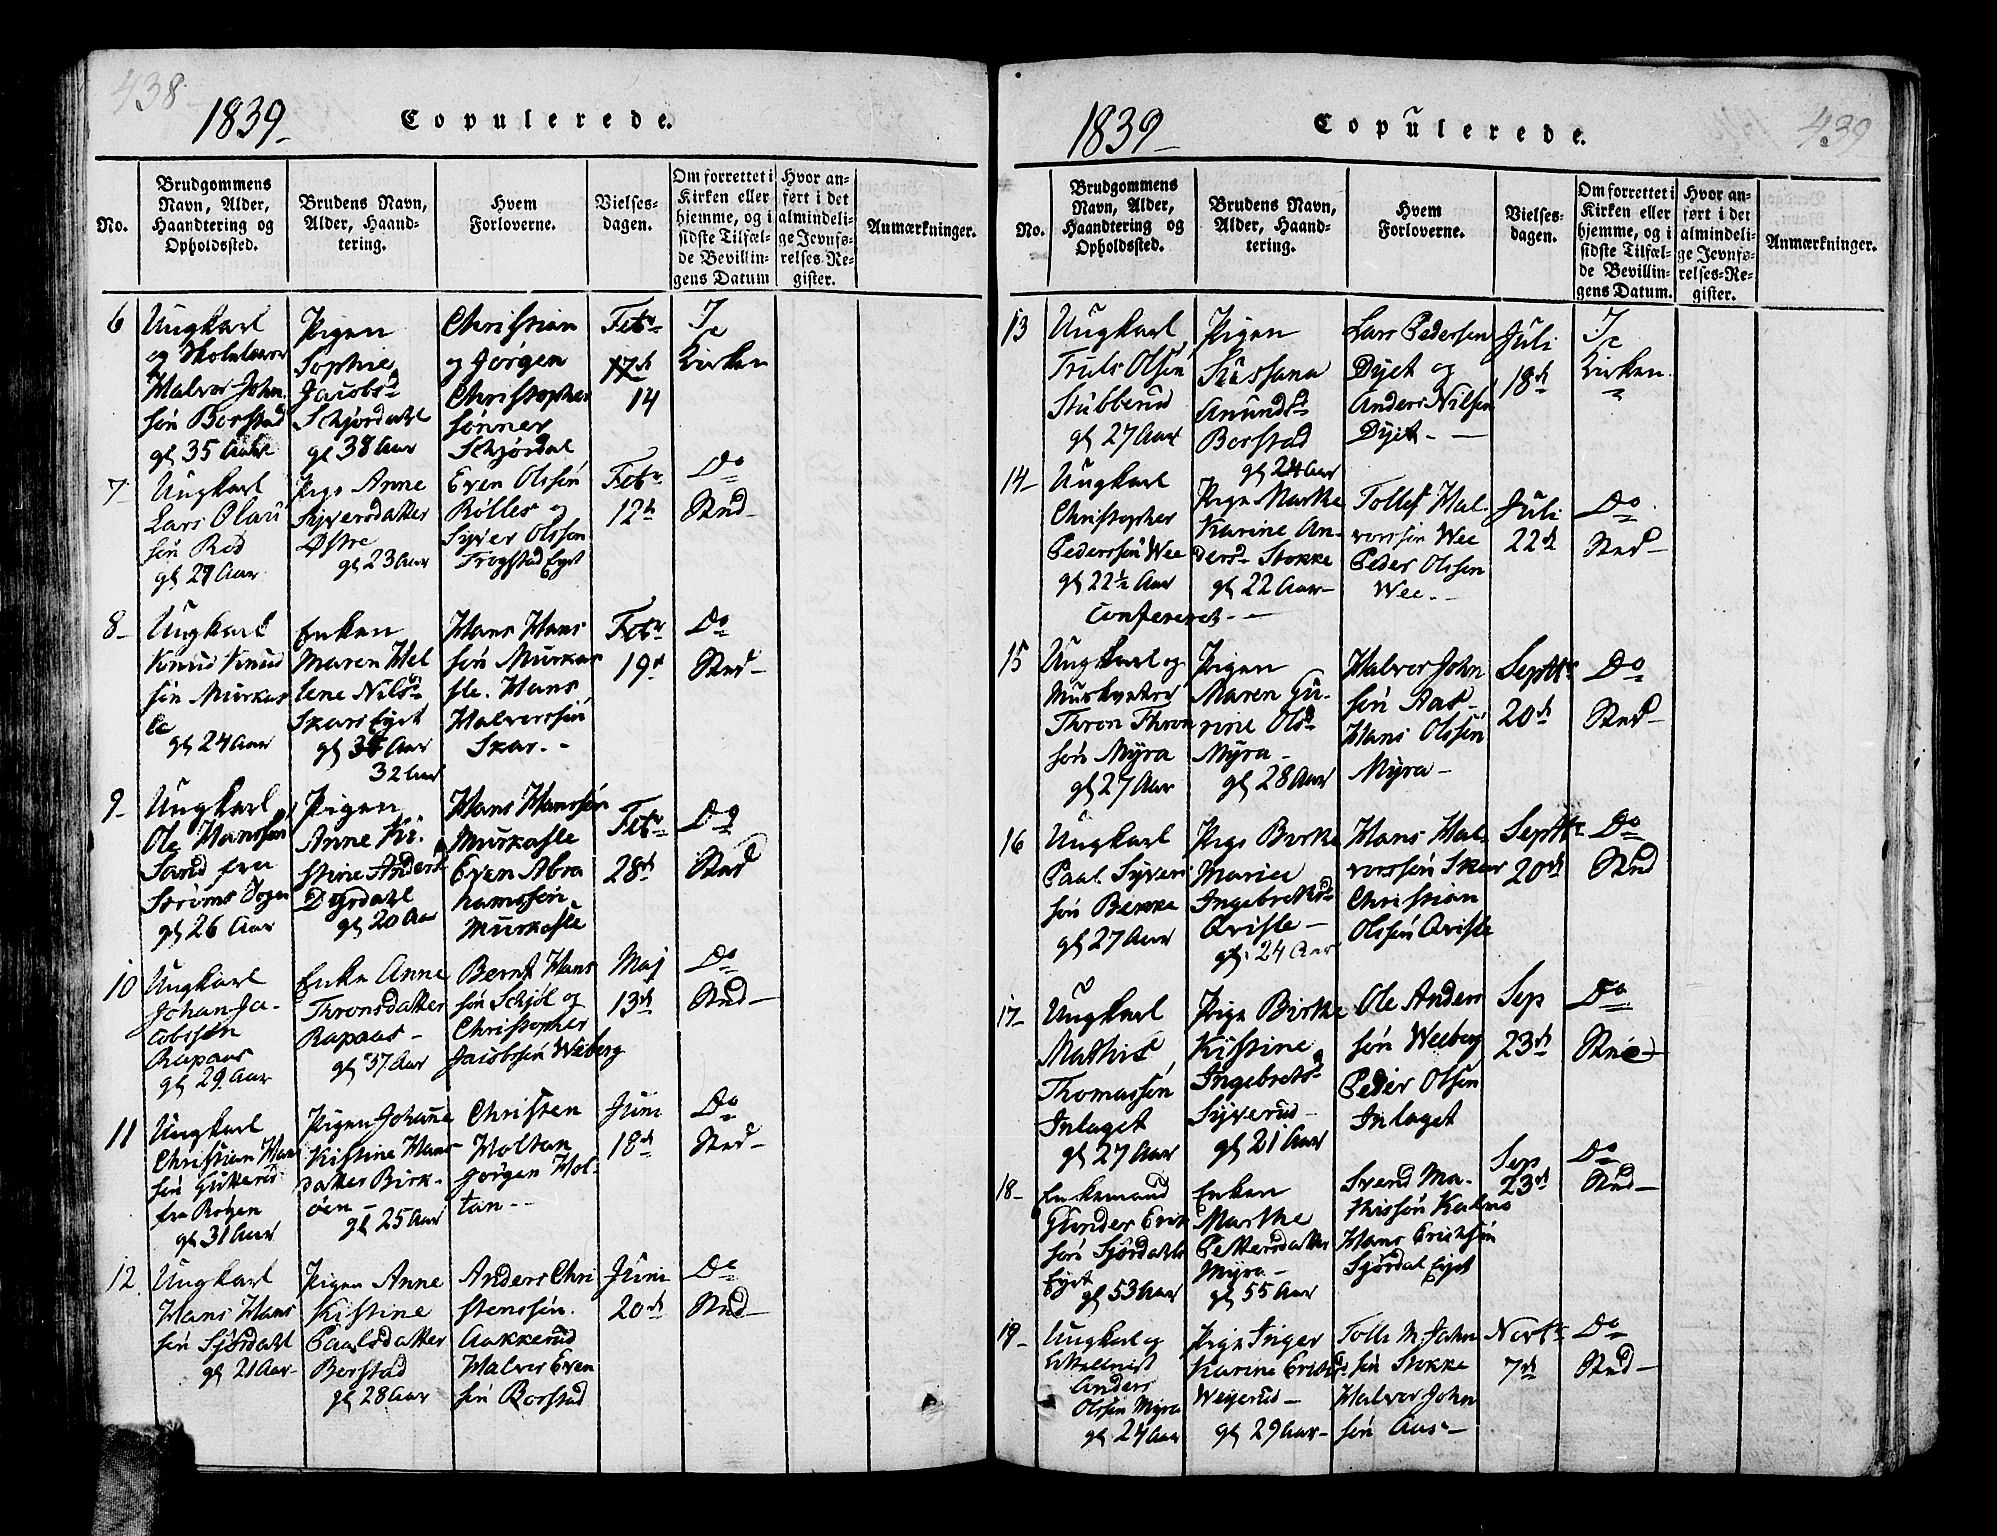 438
1839
Copulerede.
No.
Brudgommens
Navn, Alder,
Haandtering og
Opholdssted.
Brudens Navn,
Alder, Haand-
tering.
Hvem
Forloverne.
Vielses-
dagen.
Om forrettet i
Kirken eller
hjemme, og i
sidste Tilfæl-
de Bevillin-
gens Datum
Hvor an-
ført i det
almindeli-
ge Jevnfø-
relses-Re-
gister.
Anmærkninger.
6
Ungkarl
og Skolelærer
Halvor John
søn Borstad
gl 35 Aar
Pigen
Sophie
Jacobsd
Schjørdahl
gl 38 Aar
Christian
og Jørgen
Christopher
sønner
Schjørdal
Febr
17de
14
I
Kirken
7
Ungkarl
Lars Olau
søn Rød
gl 29 Aar
Pige Anne
Syversdatter
Østre
gl 23 Aar
Even Olssøn
Røller og
Syver Olsson
Frogstad Eyet
Febr
12te
Do
Sted
8
Ungkarl
Knud Knud
søn Murkas
le
gl 24 Aar
Enken
Maren Hel
lene Nilsd
Skars Eyet
gl 34 Aar
32 Aar
Hans Hans
søn Murkas
sle. Hans
Halvorssøn
Skar
Febr
19d
Do
Sted
9
Ungkarl
Ole Hanssøn
Sand fra
Strøms Sogn
gl 26 Aar
Pigen
Anne Ki
stine Andersd
Dyrdahl
gl 20 Aar
Hans Hanssøn
Murkasle
Even Abra
hamssøn
Murkasle
Febr
28de
Do
Sted
10
Ungkarl
Johan Ja-
cobssøn
Rapaas
gl 29 Aar
Enke Anne
Thronsdatter
Rapaas
gl 37 Aar
Bernt Hans
søn Schjøl og
Christopher
Jacobssøn Weberg
Maj
13de
Do
Sted
11
Ungkarl
Christian Hans
søn Gutterud
fra Røgen
gl 31 Aar
Pigen Johanne
Kistine Hans
datter Birk-
øen
gl 25 Aar
Christen
Holtan
Jørgen Hol-
tan
Juni
18de
Do
Sted
12
Ungkarl
Hans Hans
søn Sjørdahl
gl 21 Aar
Pigen Anne
Kistine
Paalsdatter
Borstad
gl 28 Aar
Anders Chri
stenssøn
Aakkerud
Halvor Even
søn Borstad
Juni
20de
Do
Sted
1839
Copulerede.
439
No.
Brudgommens
Navn, Alder,
Haandtering og
Opholdssted.
Brudens Navn,
Alder, Haand-
tering.
Hvem
Forloverne.
Vielses-
dagen.
Om forrettet i
Kirken eller
hjemme, og i
sidste Tilfæl-
de Bevillin-
gens Datum.
Hvor an-
ført i det
almindeli-
ge Jevnfø-
relses-Re-
gister.
Anmærkninger.
13
Ungkarl
Truls Olsøn
Stubberud
gl 27 Aar
Pigen
Sussana
Anundsd
Borstad
gl 24 Aar
Lars Pedersen
Dyet og
Anders Nilsen
Dyet
Juli
18de
I
Kirken
14
Ungkarl
Christopher
Pederssøn Wee
gl 22½ Aar
Confereret
Pige Marthe
Karine An-
dersd Stokke
gl 22 Aar
Tollef Hal
vorssøn Wee
Peder Olssøn
Wee
Juli
22de
Do
Sted
15
Ungkarl og
Musketer
Thron Thron
søn Myra
gl 27 Aar
Pigen
Maren Gu-
rine Olsd
Myra
gl 28 Aar
Halvor John
søn Aas
Hans Olssøn
Myra
Septbr
20de
Do
Sted
16
Ungkarl
Paal Syver
søn Bekke
gl 27 Aar
Pige Birthe
Marie
Ingebretsd
Qvisle
gl 24 Aar
Hans Hal
vorssøn Skar
Christian
Olssøn Qvisle
Septbr
20de
Do
Sted
17
Ungkarl
Mathis
Thomassøn
Inlaget
gl 27 Aar
Pige Birthe
Kistine
Ingebretsd
Syverud
gl 21 Aar
Ole Anders
søn Weeberg
Peder Olsen
Inlaget
Sep
23de
Do
Sted
18
Enkemand
Gunder Erik
søn Sjørdahls
Eyet
gl 53 Aar
Enken
Marthe
Pettersdatter
Myra
gl 55 Aar
Svend Ma-
thissøn Kalmo
Hans Erichsøn
Sjørdal Eyet
Sep
23de
Do
Sted
19
Ungkarl og
Anders
Olssøn Myra
gl 24 Aar
Pige Inger
Karine Erichsd
Weyerud
gl 29 Aar
Tolle M. John
søn Stokke
Halvor John
søn Aas
7de
Do
Sted